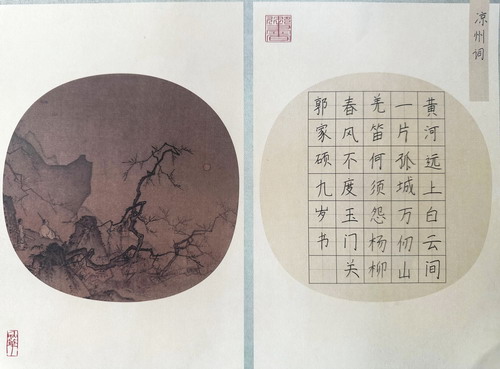 凉州词
黄河远上白云间
一片孤城万仞山
羌笛何须怨杨柳
春风不度玉门关
郭家硕九岁书